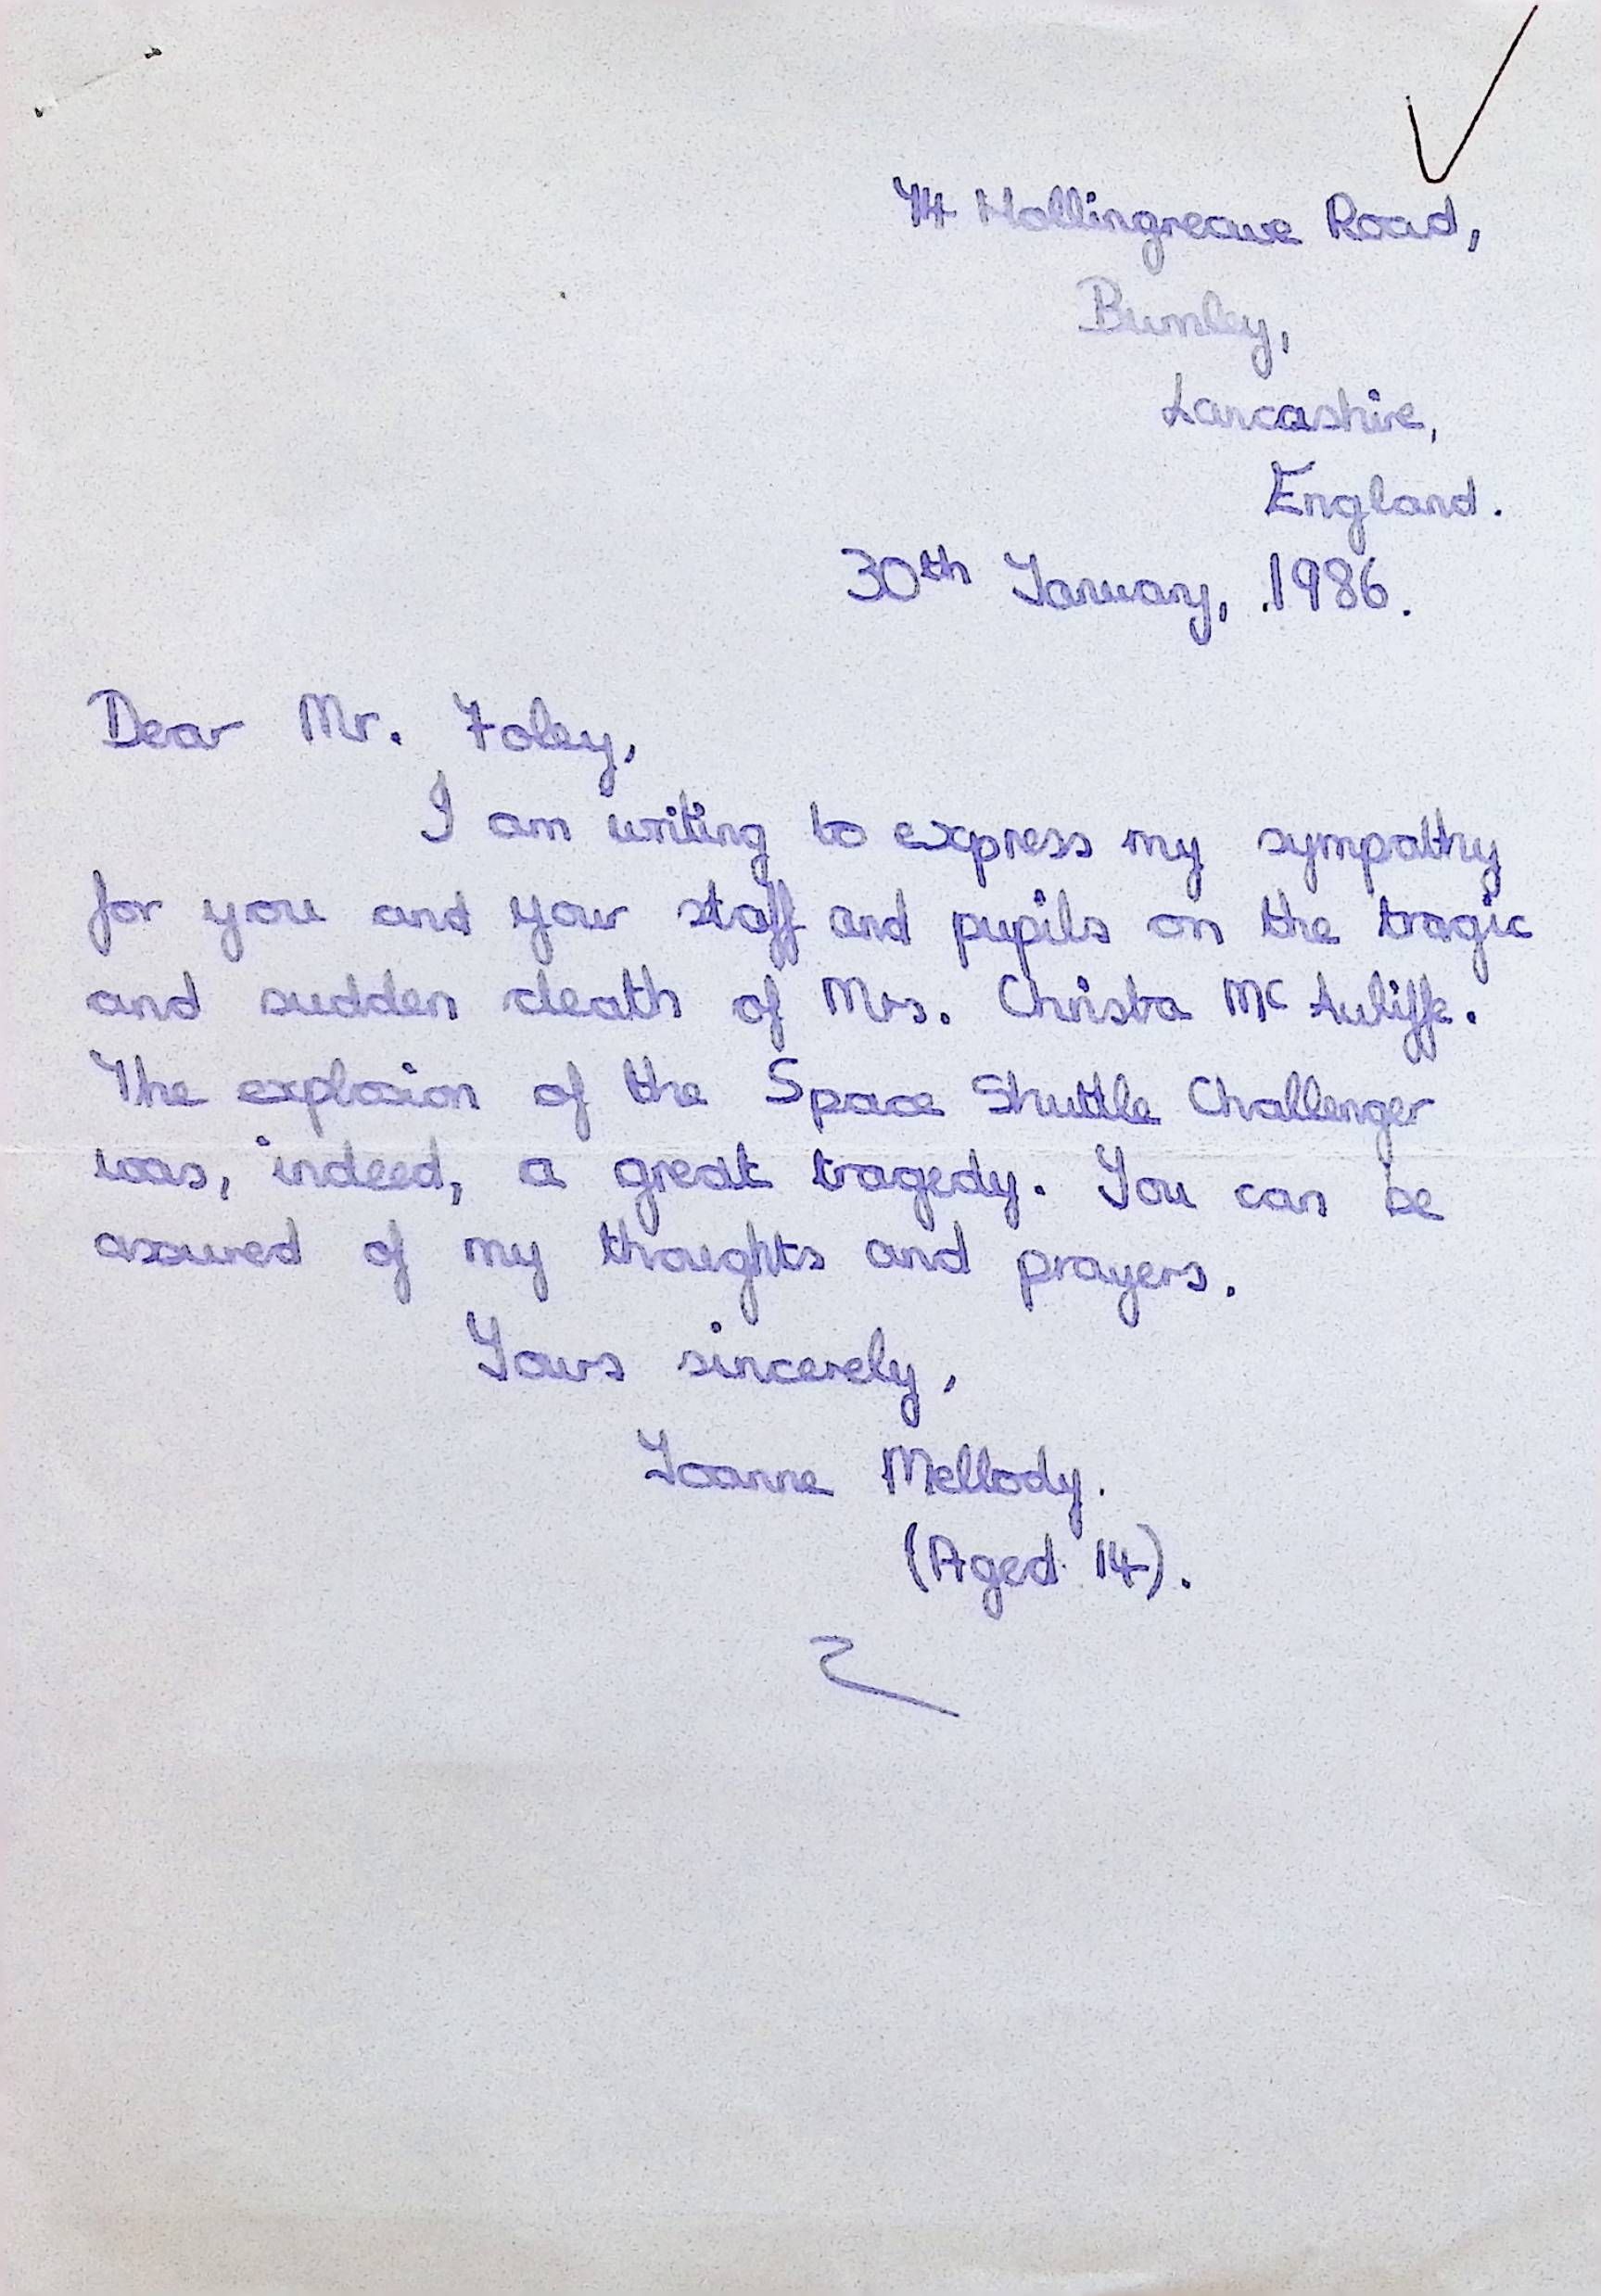 74 Hollingreave Road,
Burnley,
Lancashire,
England.
30th January, 1986.
Dear Mr. Foley,
I am writing to express my sympathy
for you and your staff and pupils on the tragic
and sudden death of Mrs. Christa Mc Auliffe.
The explosion of the Space Shuttle Challenger
was, indeed, a great tragedy. You can be
assured of my thoughts and prayers.
Yours sincerely,
Joanne Mellody.
(Aged 14).